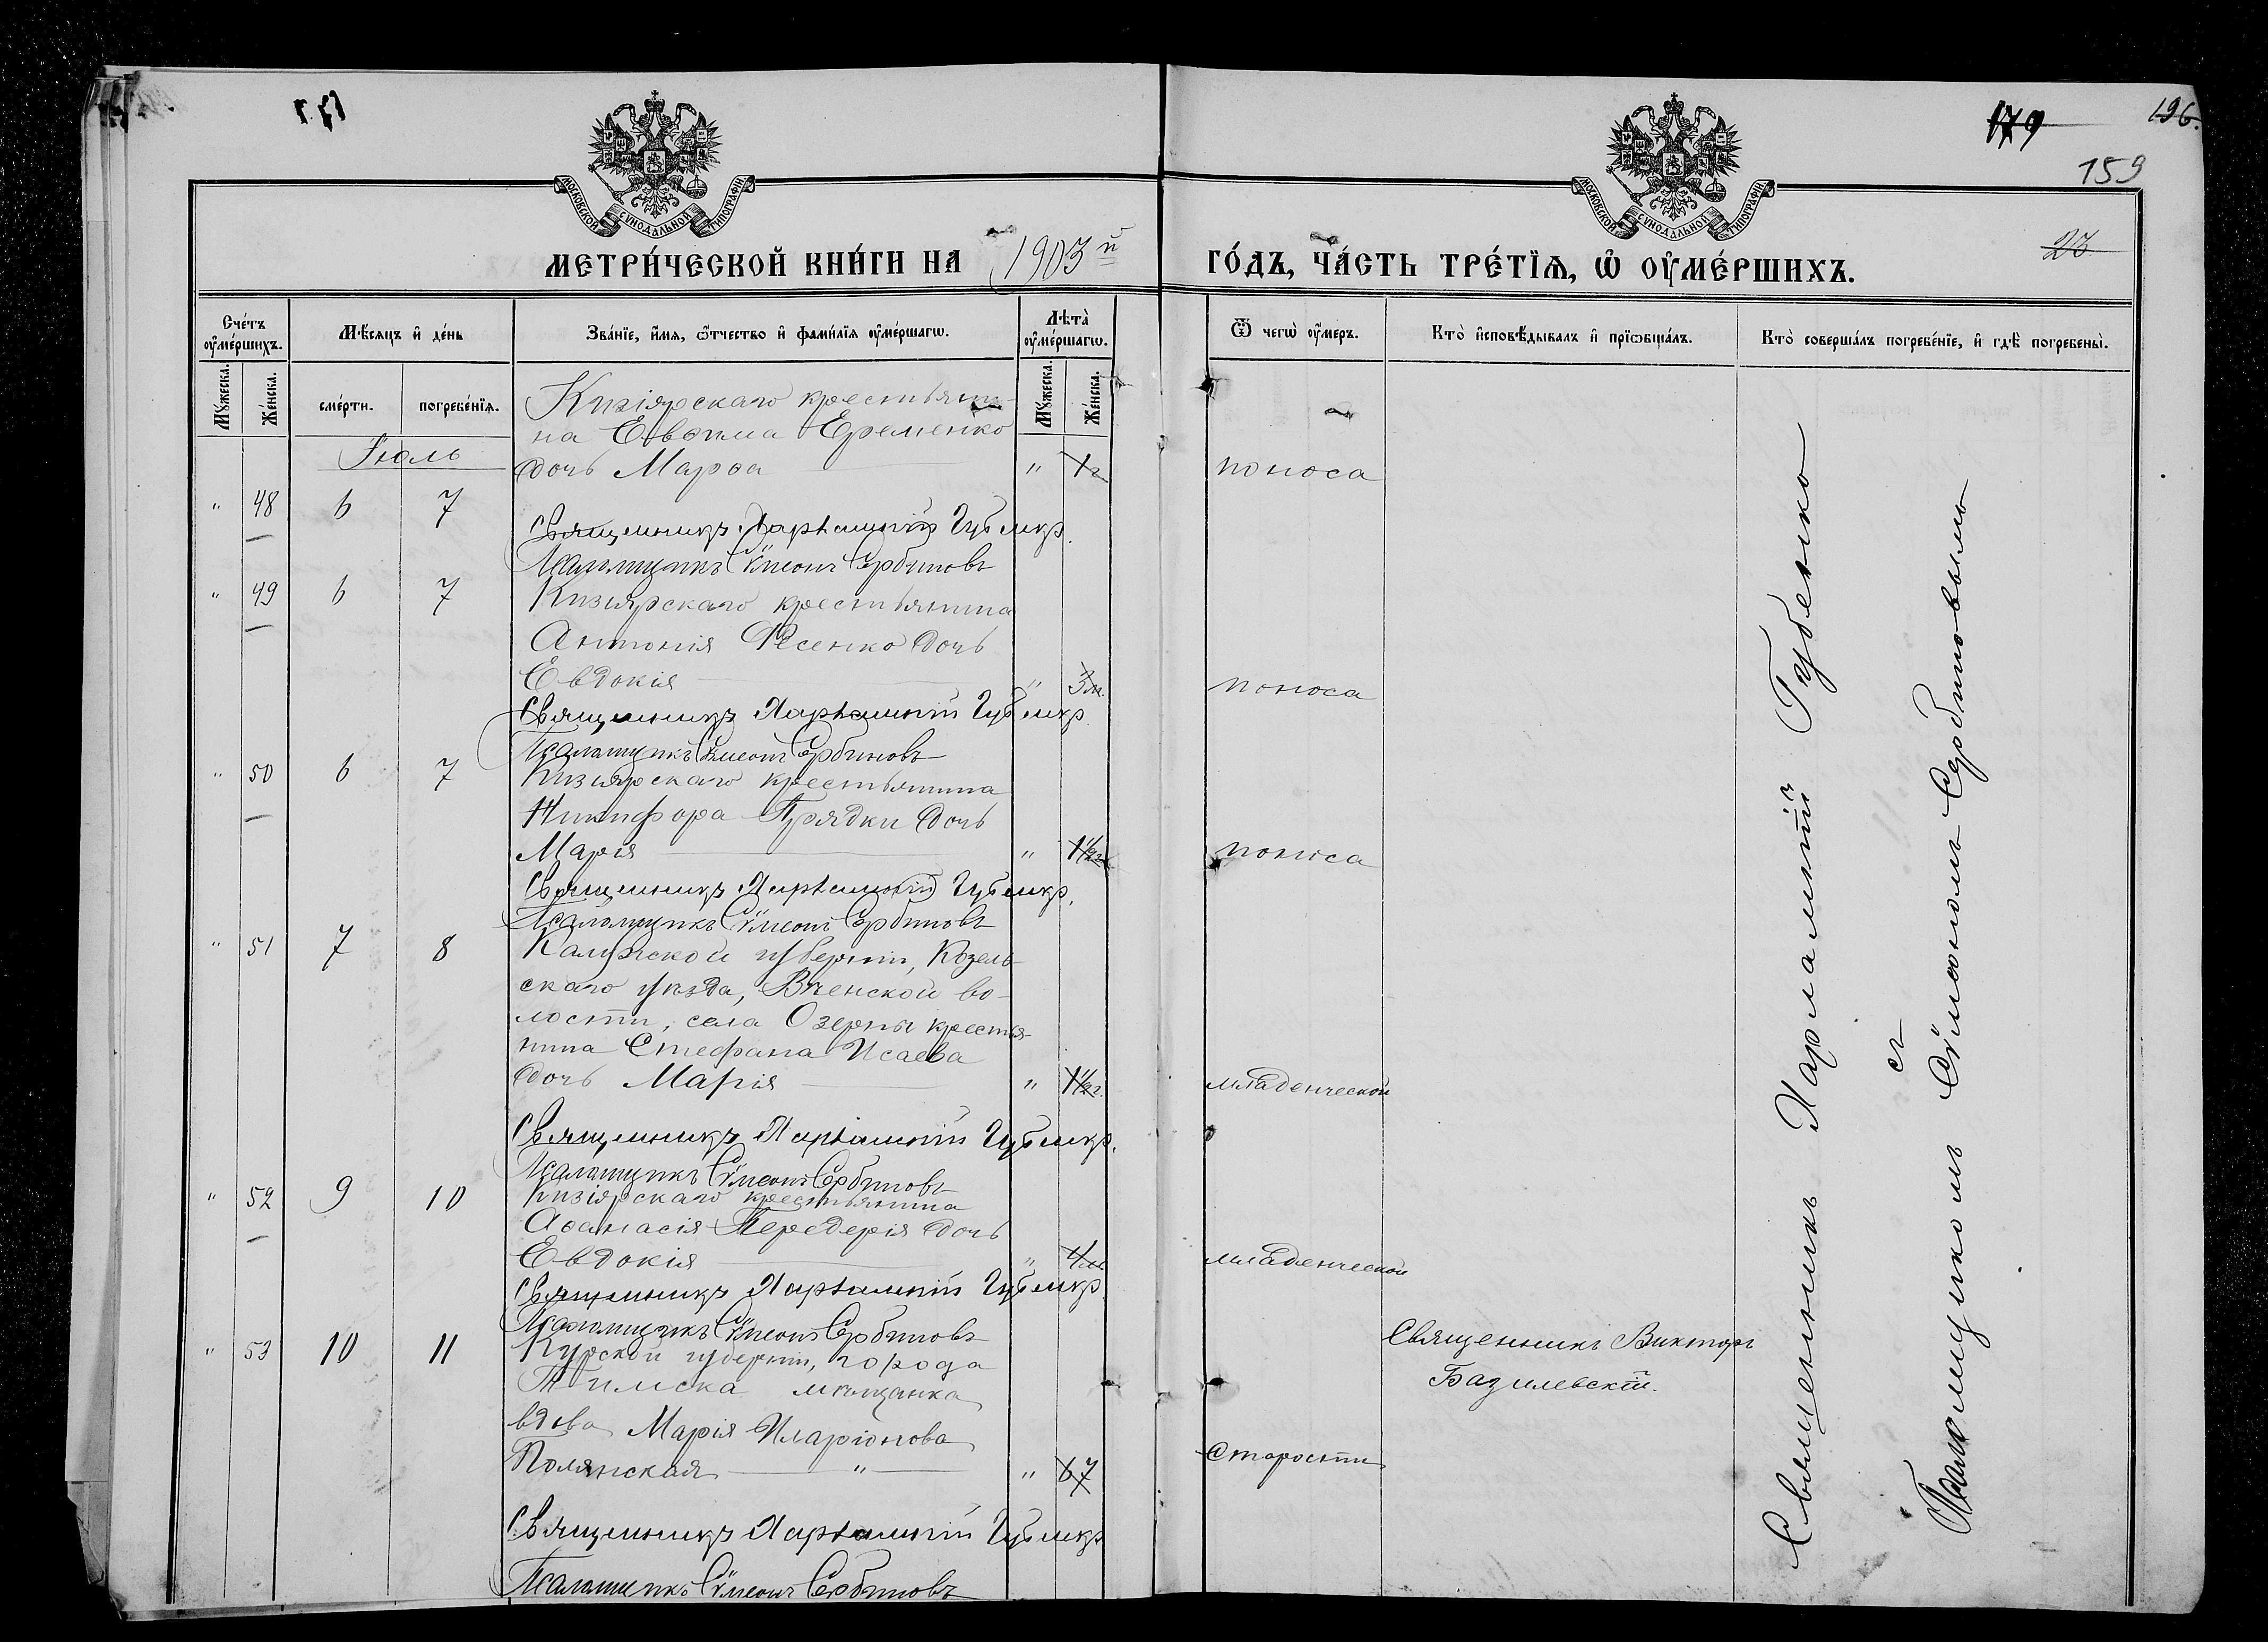 196.
179
159
23
МОСКОВСКОЙ СѴНОДАЛЬНОЙ ТИПОГРАФІИ
МОСКОВСКОЙ СѴНОДАЛЬНОЙ ТИПОГРАФІИ
МЕТРИ́ЧЕСКОЙ КНИ́ГИ НА 1903й ГО́ДЪ, ЧА́СТЬ ТРЕ́ТЇѦ, Ѡ ОУ҆МЕ́РШИХЪ.
Сче́тъ оу҆ме́ршихъ.
Мѣ́сяцъ и҆ де́нь
Зва́нїе, и҆́мя, ѻ҆́тчество и҆ фами́лїя оу҆ме́ршагѡ.
Лѣта̀ оу҆ме́ршагѡ.
Ѿ чегѡ̀ оу҆́меръ.
Кто̀ и҆сповѣ́дывалъ и҆ прїѡбща́лъ.
Кто̀ соверша́лъ погребе́нїе, и҆ гдѣ̀ погребены̀.
Мꙋ́жеска.
Же́нска.
сме́рти.
погребе́нїя.
Мꙋ́жеска.
Же́нска.
Іюль
Кизіярскаго крестьяни-
на Евѳима Еременко
" 48 6 7 дочь Марѳа " 1г поноса
Священникъ Харлампій Губенко.
Псаломщикъ Сѵмеонъ Сербиновъ
" 49 6 7 Кизіярскаго крестьянина
Антонія Фесенко дочь
Евдокія " 3м. поноса
Священникъ Харлампій Губенко.
Псаломщикъ Сѵмеонъ Сербиновъ
" 50 6 7 Кизіярскаго крестьянина
Никифора Прядки дочь
Марія " 1½г. поноса
Священникъ Харлампій Губенко.
Псаломщикъ Сѵмеонъ Сербиновъ
" 51 7 8 Калужской губерніи, Козель-
скаго уѣзда, во-
лости, села Озерны крестья-
нина Стефана Исаева
дочь Марія " 1½г. младенческой
Священникъ Харлампій Губенко.
Псаломщикъ Сѵмеонъ Сербиновъ
" 52 9 10 Кизіярскаго крестьянина
Аѳанасія Передерія дочь
Евдокія " 4м. младенческой
Священникъ Харлампій Губенко.
Псаломщикъ Сѵмеонъ Сербиновъ
" 53 10 11 Курской губерніи, города
Тимска мѣщанка
вдова Марія Иларіонова
Полянская " " 67 Старости
Священникъ Викторъ
Базилевскій.
Священникъ Харлампій Губенко
Псаломщикъ Сѵмеонъ Сербиновъ
Священникъ Харлампій Губенко
съ
Псаломщикомъ Сѵмеономъ Сербиновымъ